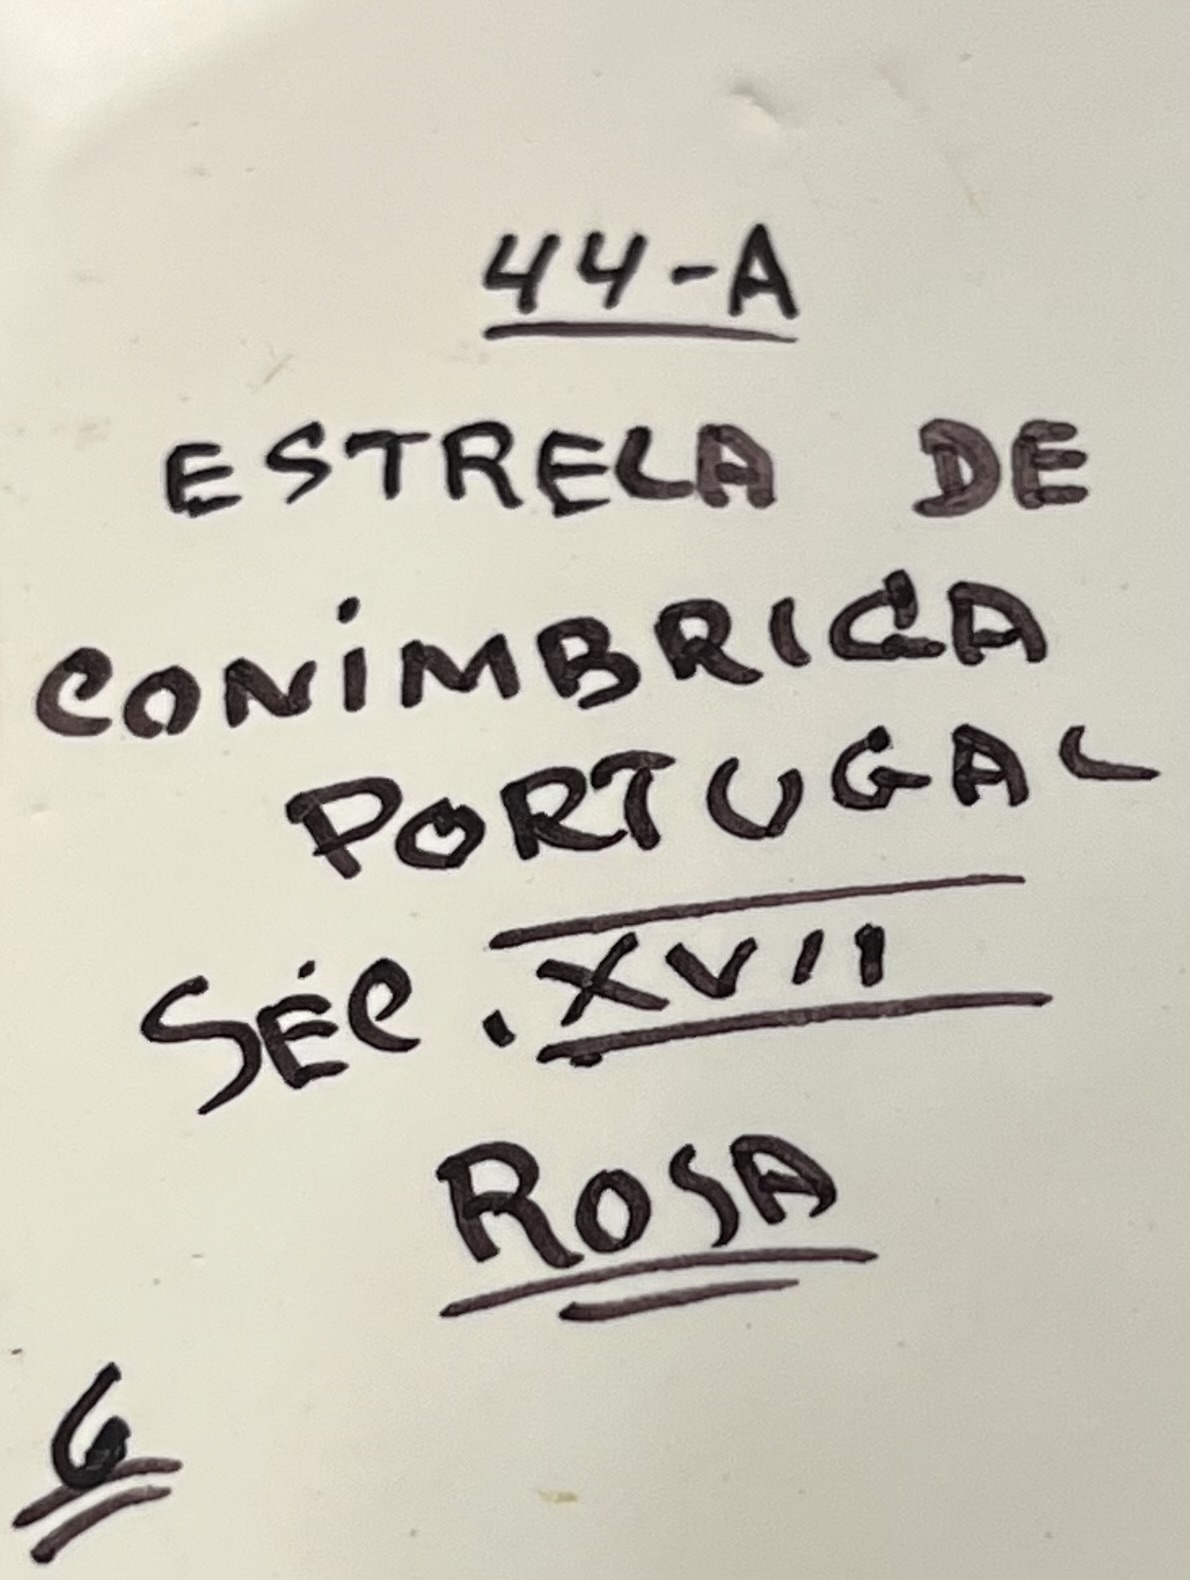 44-A
ESTRELA DE
CONIMBRIGA
PORTUGAL
SÉC. XVII
ROSA
6